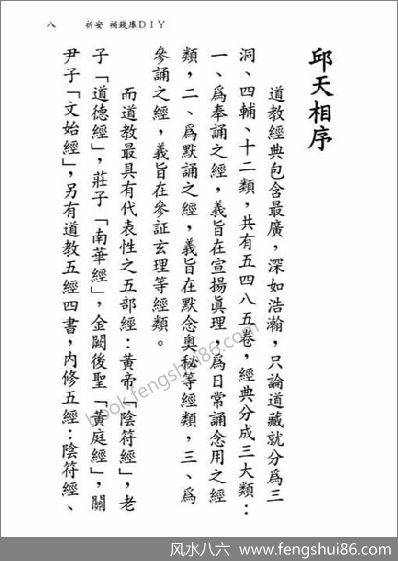 八
祈安 補錢庫DIY
邱天相序
道教經典包含最廣，深如浩瀚，只論道藏就分為三
洞、四輔、十二類，共有五四八五卷，經典分成三大類：
一、為奉誦之經，義旨在宣揚真理，為日常誦念用之經
類，二、為默誦之經，義旨在默念奧秘等經類，三、為
參誦之經，義旨在參証玄理等經類。
而道教最具有代表性之五部經：黃帝「陰符經」，老
子「道德經」，莊子「南華經」，金闕後聖「黃庭經」，關
尹子「文始經」，另有道教五經四書，內修五經：陰符經、
book.fengshui86.com
风水八六｜www.fengshui86.com